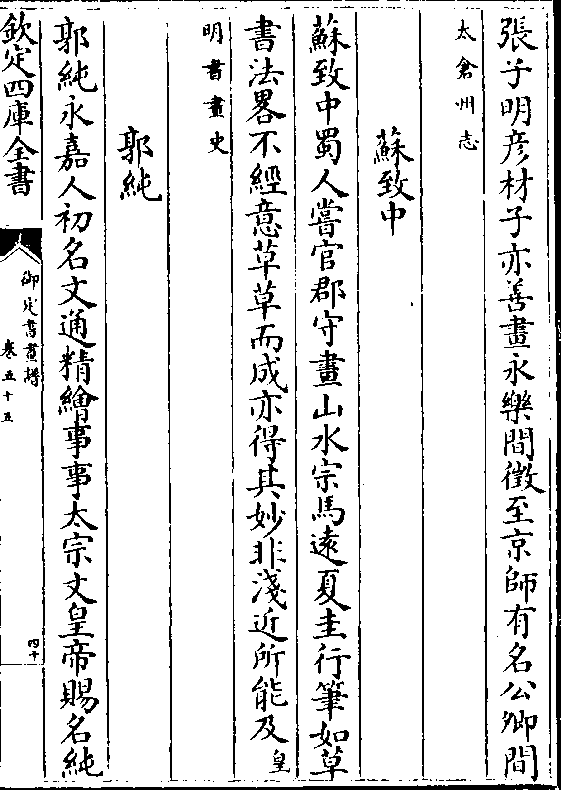 張子明彦材子亦善畫永樂間徵至京師有名公卿間
太倉州志
蘇致中
蘇致中蜀人嘗官郡守畫山水宗馬遠夏圭行筆如草
書法畧不經意草草而成亦得其妙非淺近所能及皇
明書畫史
郭純
郭純永嘉人初名文通精繪事事太宗文皇帝賜名純
欽定四庫全書
御定書畫譜
卷五十五
四十